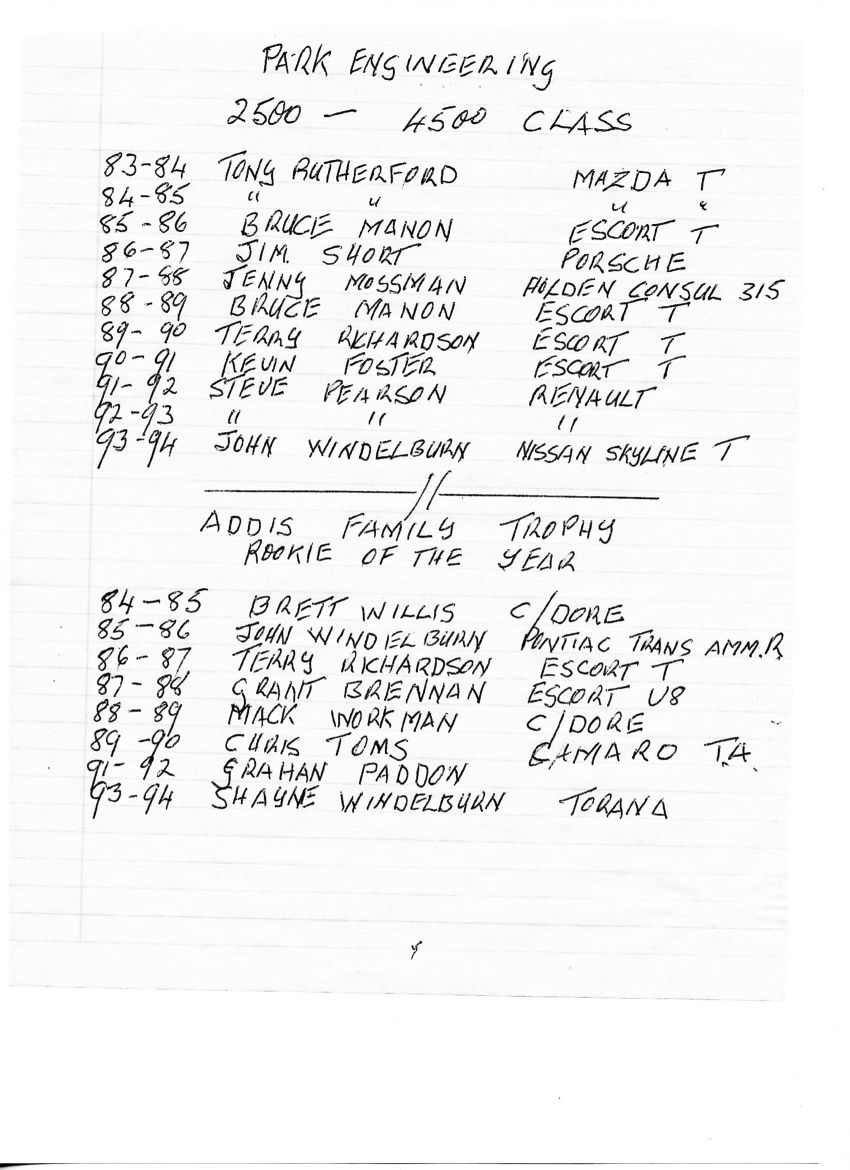 PARK ENGINEERING
2500 — 4500 CLASS
83-84 TONY RUTHERFORD MAZDA T
84-85 " " " "
85-86 BRUCE MANON ESCORT T
86-87 JIM. SHORT PORSCHE
87-88 JENNY MOSSMAN HOLDEN CONSUL 315
88-89 BRUCE MANON ESCORT T
89-90 TERRY RICHARDSON ESCORT T
90-91 KEVIN FOSTER ESCORT T
91-92 STEVE PEARSON RENAULT
92-93 " " "
93-94 JOHN WINDELBURN NISSAN SKYLINE T
ADDIS FAMILY TROPHY
ROOKIE OF THE YEAR
84-85 BRETT WILLIS C/DORE
85-86 JOHN WINDELBURN PONTIAC TRANS AMM.R
86-87 TERRY RICHARDSON ESCORT T
87-88 GRANT BRENNAN ESCORT V8
88-89 MACK WORKMAN C/DORE
89-90 CHRIS TOMS CAMARO T.A.
91-92 GRAHAN PADDON
93-94 SHAYNE WINDELBURN TORANA